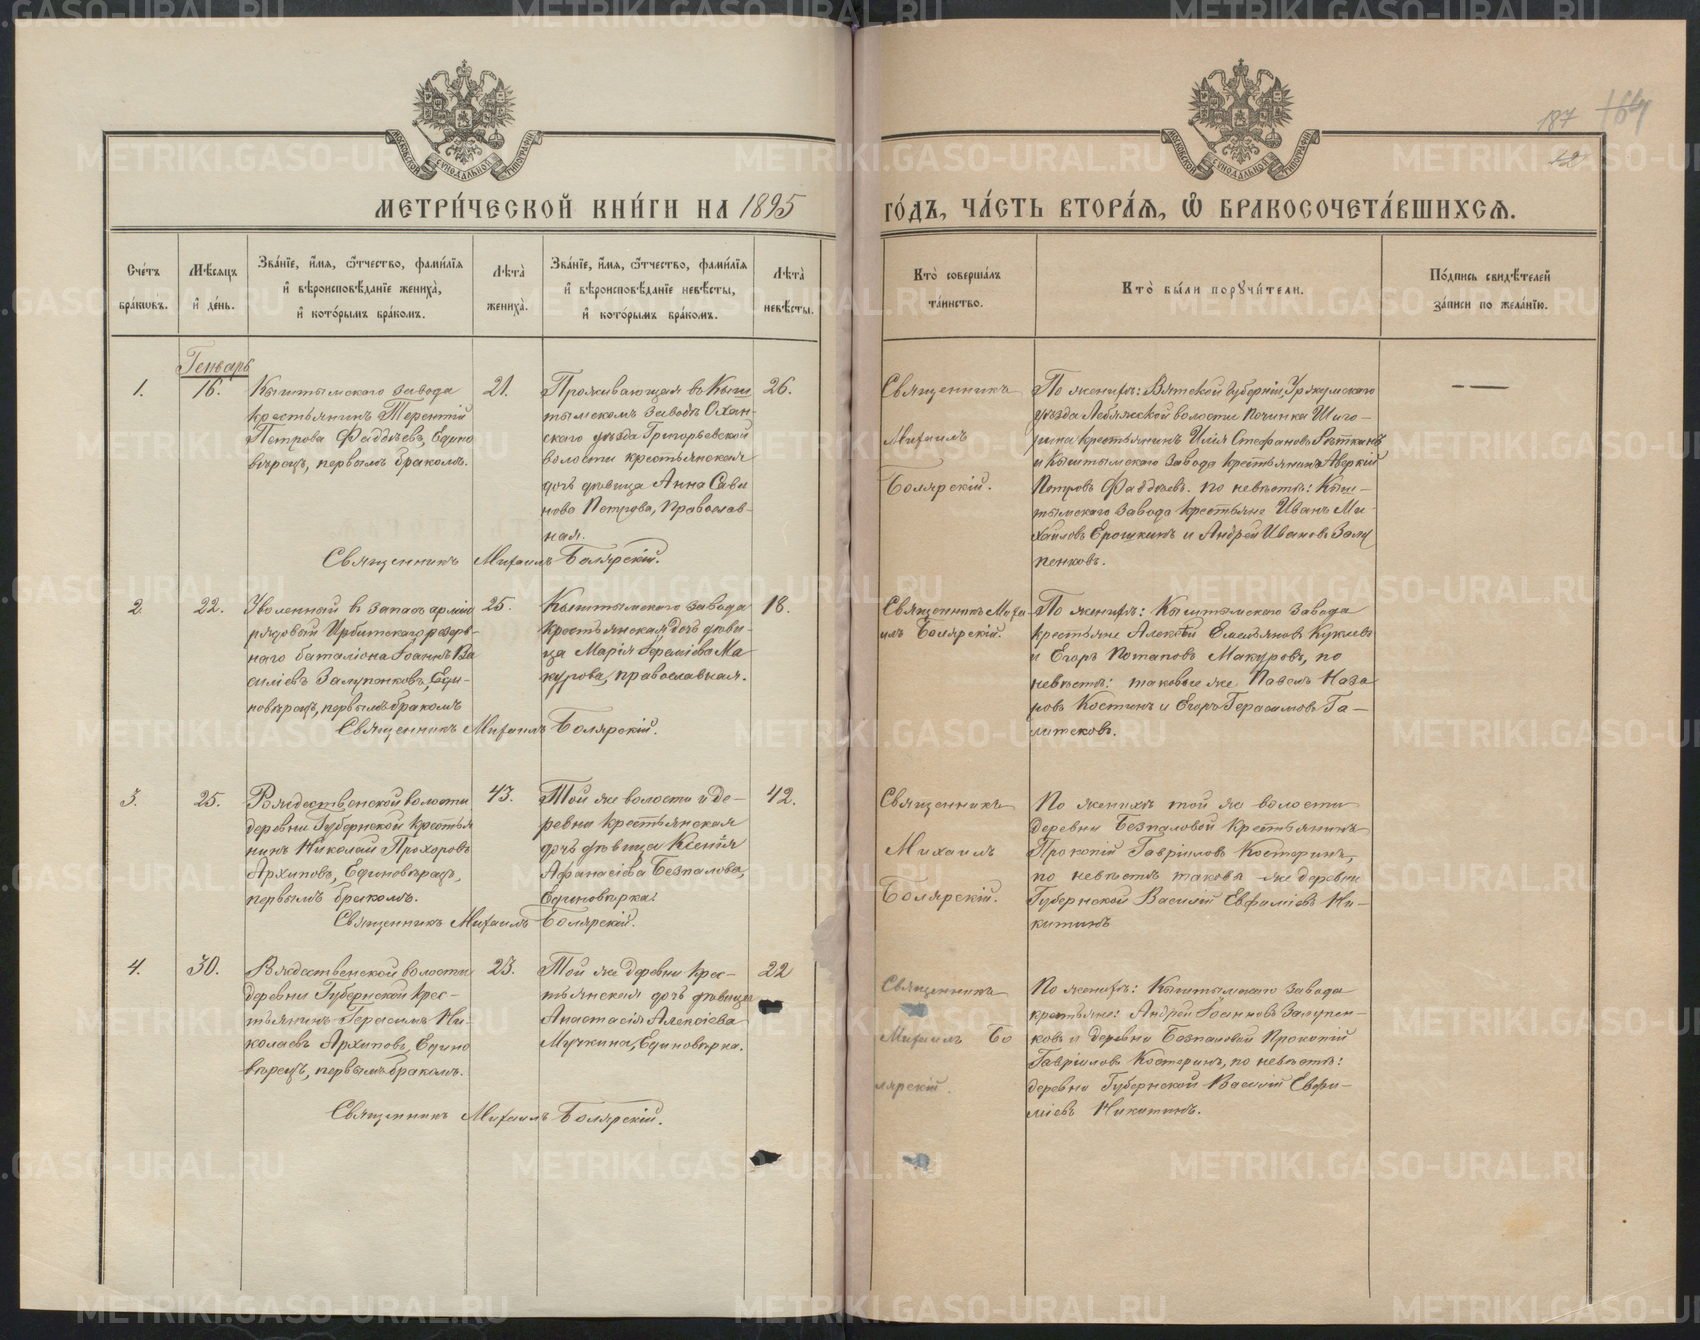 МЕТРИ́ЧЕСКОЙ КНИ́ГИ НА 1895
ГО́ДЪ, ЧА́СТЬ ВТОРА́Ѧ, Ѽ БРАКОСОЧЕТА́ВШИХСѦ.
187
Сче́тъ бра́кѡвъ.
Мѣ́сѧцъ и҆ де́нь.
Зва́нїе, и҆́мѧ, ѻ҆́тчество, фами́лїѧ
и҆ вѣроисповѣ́данїе жениха̀,
и҆ кото́рымъ бра́комъ.
Лѣ́та жениха̀.
Зва́нїе, и҆́мѧ, ѻ҆́тчество, фами́лїѧ
и҆ вѣроисповѣ́данїе невѣ́сты,
и҆ кото́рымъ бра́комъ.
Лѣ́та невѣ́сты.
Кто̀ соверша́лъ
та́инство.
Кто̀ бы́ли порꙋчи́тели.
По́дпись свидѣ́телей
за́писи по жела́нїю.
Генварь
1.
16.
Кыштымскаго завода
крестьянинъ Терентій
Петровъ Фаддѣевъ, Едино
вѣрецъ, первымъ бракомъ.
21.
Проживающая въ Кыш
тымскомъ заводѣ Охан-
скаго уѣзда Григорьевской
волости крестьянская
дочь дѣвица Анна Сави
нова Петрова, Православ-
ная.
26.
Священникъ
Михаилъ
Болярскій.
По женихѣ: Вятской губерніи, Уржумскаго
уѣзда Лебяжской волости починка Шиго-
рина крестьянинъ Илія Стефановъ
и Кыштымскаго завода крестьянинъ Аверкій
Петровъ Фаддѣевъ. по невѣстѣ: Кыш-
тымскаго завода крестьяне Иванъ Ми-
хайловъ Ерошкинъ и Андрей Ивановъ Залу
пенковъ.
Священникъ Михаилъ Болярскій.
2.
22.
Уволенный въ запасъ арміи
рядовой Ирбитскаго резерв-
наго баталіона Іоаннъ Ва
силіевъ Залупенковъ, Еди-
новѣрецъ, первымъ бракомъ
25.
Кыштымскаго завода
крестьянская дочь дѣви-
ца Марія Іереміева Ма-
курова, православная.
18.
Священникъ Миха
илъ Болярскій.
По женихѣ: Кыштымскаго завода
крестьяне Алексѣй Емельяновъ Куклевъ
и Егоръ Потаповъ Макуровъ, по
невѣстѣ: таковые же Павелъ Наза
ровъ Костинъ и Егоръ Герасимовъ Га-
литсковъ.
Священникъ Михаилъ Болярскій.
3.
25.
Рождественской волости
деревни Губернской крестья
нинъ Николай Прохоровъ
Архиповъ, Единовѣрецъ,
первымъ бракомъ.
43.
Той же волости и де-
ревни крестьянская
дочь дѣвица Ксенія
Афанасіева Безпалова,
Единовѣрка.
42.
Священникъ
Михаилъ
Болярскій.
По женихѣ той же волости
деревни Безпаловой крестьянинъ
Прокопій Гавріиловъ Костеринъ,
по невѣстѣ таковъ же деревни
Губернской Василій Евфиміевъ Ни-
китинъ
Священникъ Михаилъ Болярскій.
4.
30.
Рождественской волости
деревни Губернской крес-
тьянинъ Герасимъ Ни-
колаевъ Архиповъ, Едино
вѣрецъ, первымъ бракомъ.
23.
Той же деревни крес-
тьянская дочь дѣвица
Анастасія Алексіева
Мучкина, Единовѣрка.
22
Священникъ
Михаилъ Бо
лярскій.
По женихѣ: Кыштымскаго завода
крестьяне: Андрей Іоанновъ Залупен-
ковъ и деревни Безпаловой Прокопій
Гавріиловъ Костеринъ, по невѣстѣ:
деревни Губернской Василій Евфи-
міевъ Никитинъ.
Священникъ Михаилъ Болярскій.
METRIKI.GASO-URAL.RU